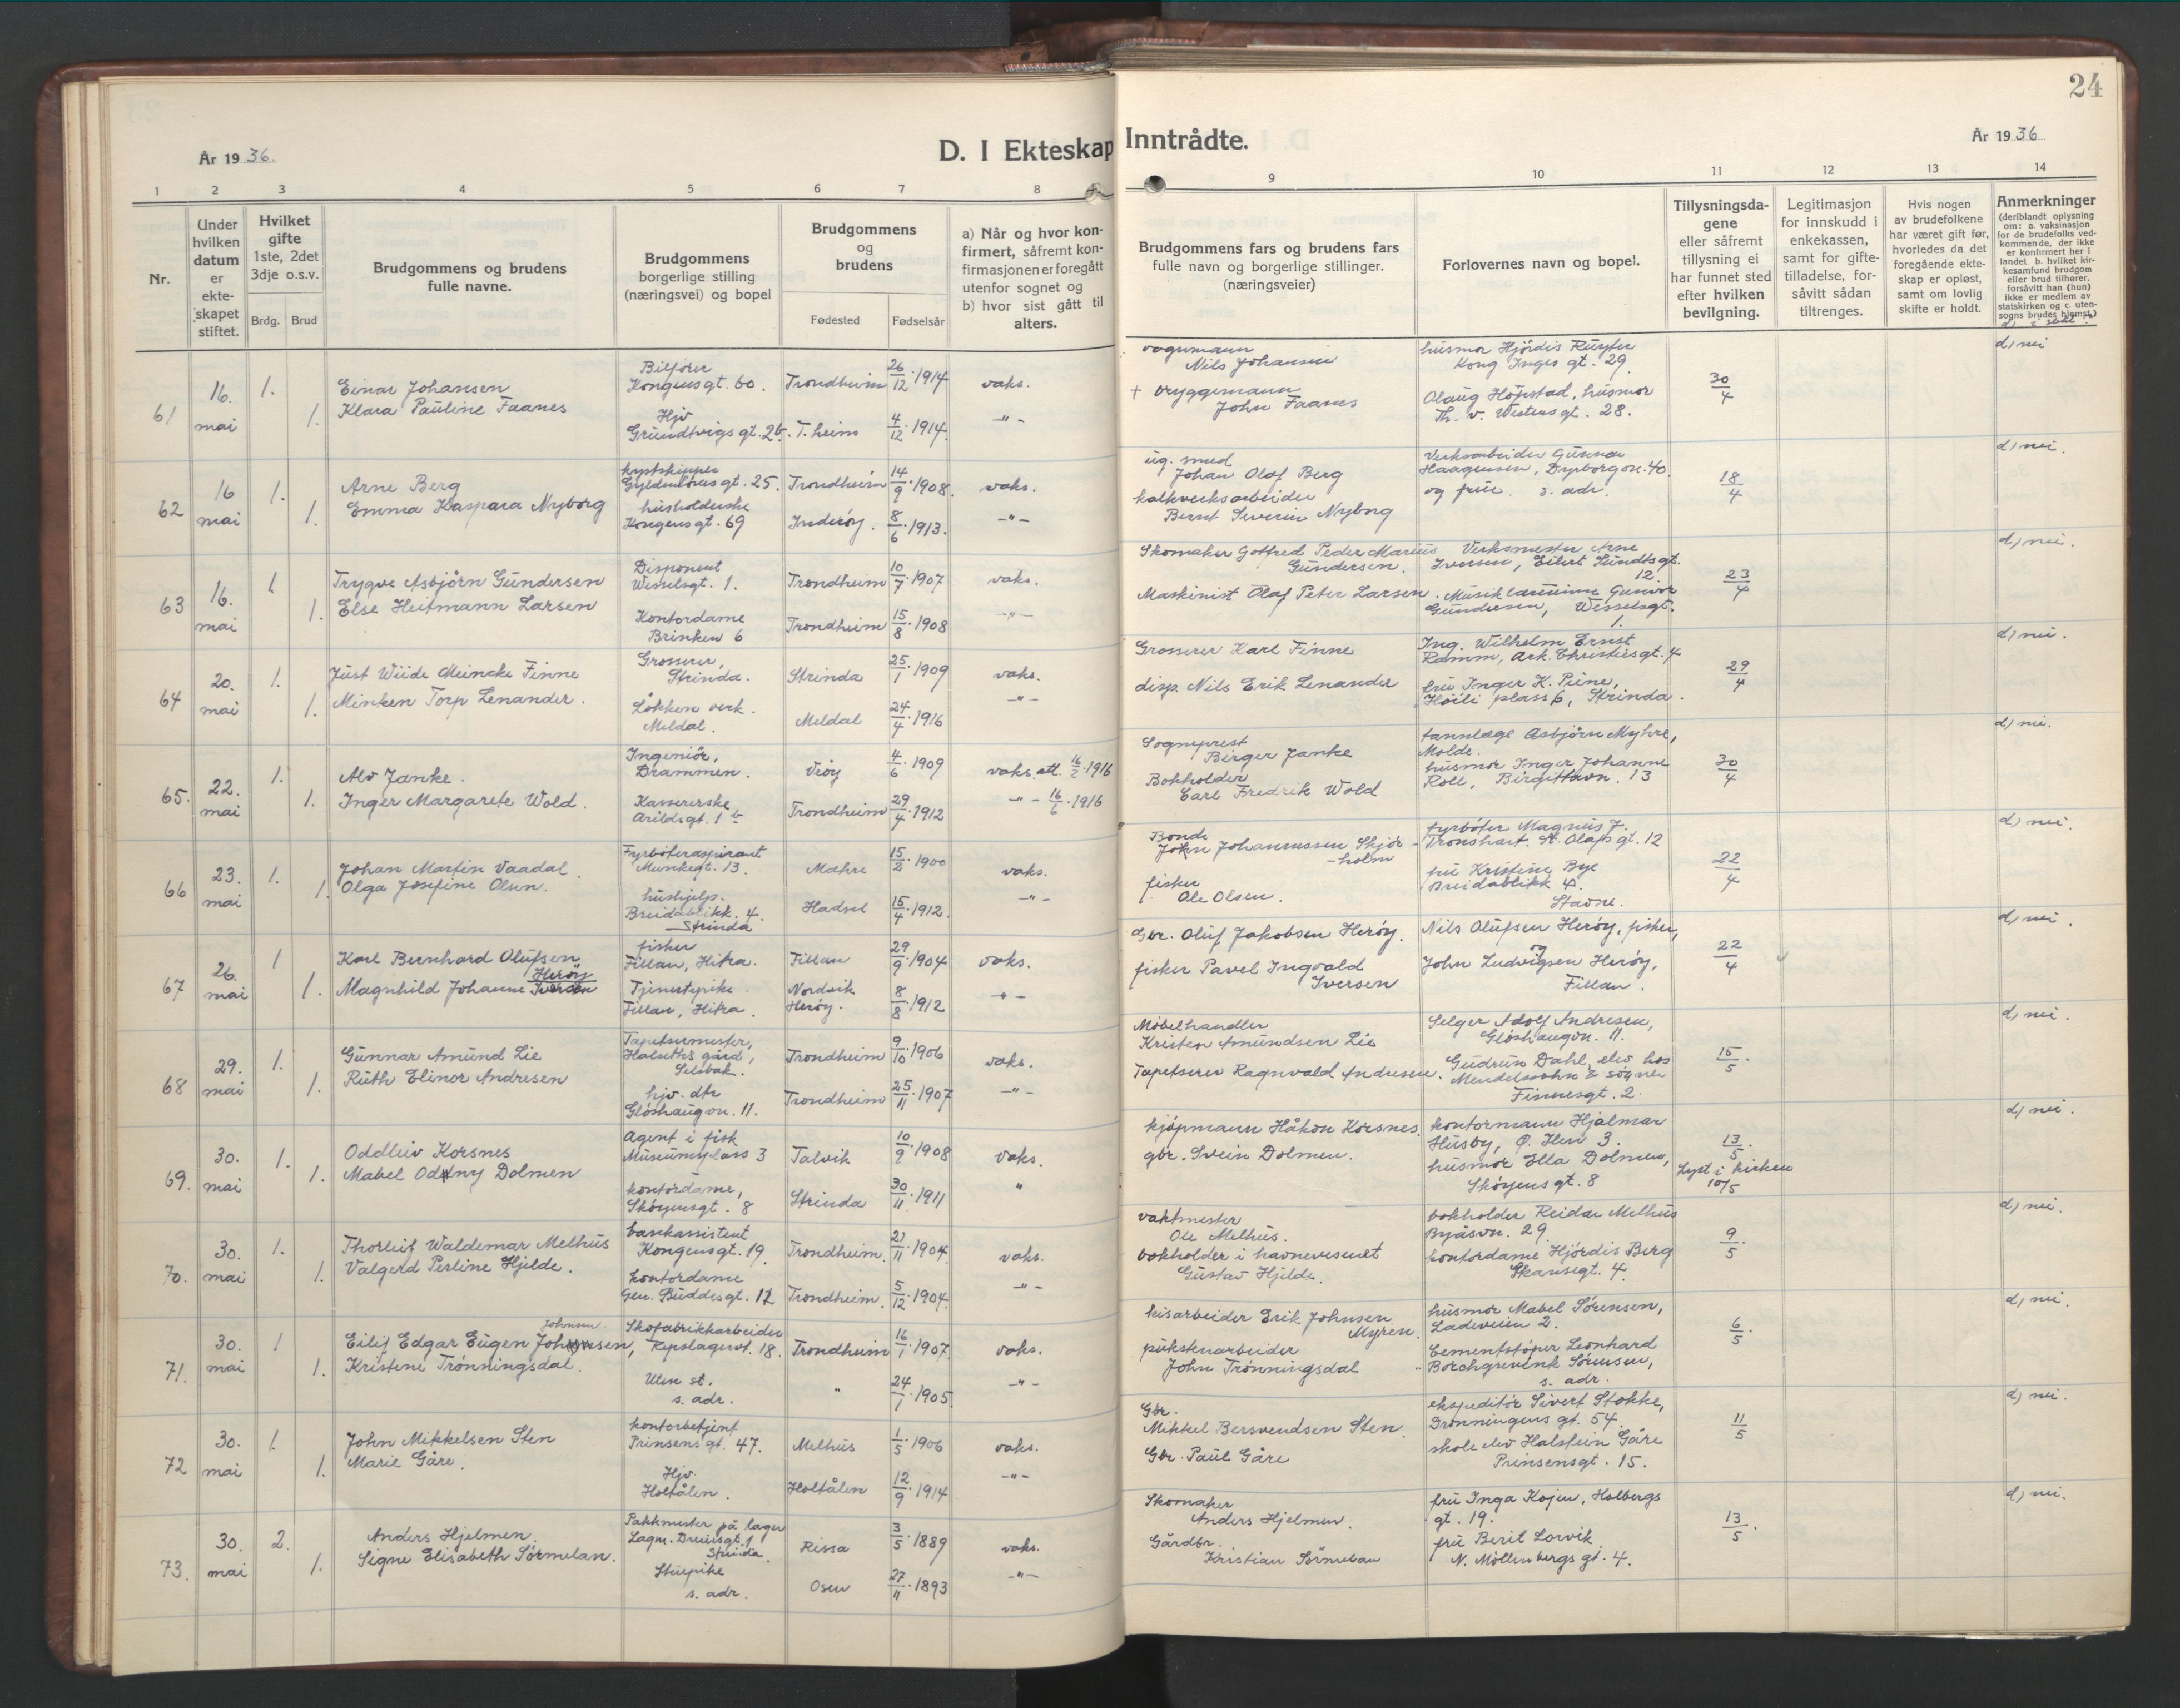 24
År 1936.
D. I Ekteskap Inntrådte.
År 1936
1 2 3 4 5 6 7 8 9 10 11 12 13 14
Nr.
Under hvilken datum er ekteskapet stiftet.
Hvilket gifte 1ste, 2det 3dje o.s.v.
Brdg. Brud
Brudgommens og brudens fulle navne.
Brudgommens borgerlige stilling (næringsvei) og bopel
Brudgommens og brudens
Fødested Fødselsår
a) Når og hvor konfirmert, såfremt konfirmasjonen er foregått utenfor sognet og b) hvor sist gått til alters.
Brudgommens fars og brudens fars fulle navn og borgerlige stillinger. (næringsveier)
Forlovernes navn og bopel.
Tillysningsdagene eller såfremt tillysning ei har funnet sted efter hvilken bevilgning.
Legitimasjon for innskudd i enkekassen, samt for giftetilladelse, forsåvitt sådan tiltrenges.
Hvis nogen av brudefolkene har været gift før, hvorledes da det foregående ekteskap er opløst, samt om lovlig skifte er holdt.
Anmerkninger (deriblandt oplysning om: a. vaksinasjon for de brudefolks vedkommende, der ikke er konfirmert her i landet b. hvilket kirkesamfund brudgom eller brud tilhører, forsåvitt han (hun) ikke er medlem av statskirken og c. utensogns brudes hjemst.)
61 16. mai 1. 1.
Einar Johansen
Klara Pauline Faanes
Bilfører Kongensgt. 60. Trondheim 26/12. 1914 vaks.
Hjv Grundtvigs gt. 2b. T.heim 4/12. 1914. -"-
vognmann Nils Johansen
+ bryggemann John Faanes
husmor Hjördis Ruyter Kong Inges gt. 29.
Olaug Höpstad, husmor Th. v. Westens gt. 28.
30/4
d) nei
62 16 mai 1. 1.
Arne Berg
Emma Kaspara Nyborg
kystskipper Gyldenlövesgt. 25. Trondheim 14/9. 1908. vaks.
husholderske Kongensgt. 69 Inderöy. 8/6. 1913. -"-
ug. smed Johan Olaf Berg
kalkverksarbeider Bernt Severin Nyborg
Verksarbeider Gunnar Haagensen, Dyrborgvn. 40. og frue. s. adr.
18/4
d) nei.
63 16. mai 1. 1.
Trygve Asbjörn Gundersen
Else Heitmann Larsen
Disponent Wesselsgt. 1. Trondheim 10/7. 1907 vaks.
Kontordame Brinken 6 Trondheim 15/8. 1908 -"-
Skomaker Gotfred Peder Marius Gundersen.
Maskinist Olaf Peter Larsen.
Verksmester Arne Iversen, Eilert Sundts gt. 12.
Musiklærerinne Gunvor Gundersen, Wesselsgt. 1.
23/4
d) nei.
64 20. mai 1. 1.
Just Wiide Meincke Finne
Minken Torp Lenander.
Grosserer, Strinda. Strinda 25/1. 1909 vaks.
Lökken verk. Meldal. Meldal 24/4. 1916 -"-
Grosserer Karl Finne
disp. Nils Erik Lenander
Ing. Wilhelm Ernst Ramm, Ark. Christies gt. 4
fru Inger K. Piene, Höili plass 6, Strinda.
29/4
d) nei.
65. 22. mai 1. 1.
Alv Janke.
Inger Margarete Wold.
Ingeniör, Drammen. Veöy 4/6. 1909 vaks. att. 16/2. 1916
Kassererske Arildsgt. 1 b Trondheim 29/4. 1912 -"- 16/6. 1916
Sogneprest Birger Janke
Bokholder Carl Fredrik Wold
tannlæge Asbjörn Myhre, Molde.
husmor Inger Johanne Roll, Birgittavn. 13
30/4
d) nei.
66 23. mai 1. 1.
Johan Martin Vaadal.
Olga Josefine Olsen.
Fyrböteraspirant Munkegt. 13. Mæhre 15/2. 1900 vaks.
hushjelp. Breidablikk. 4. Strinda Hadsel 15/4. 1912. -"-
Bonde John Johannessen Skjörholm
fisker Ole Olsen.
fyrböter Magnus J. Tronshart. St. Olafs gt. 12
fru Kristine Bye Breidablikk 4. Stavne.
22/4
d) nei.
67 26. mai 1 1.
Karl Bernhard Olufsen Heröy
Magnhild Johanne Iversen
fisker Fillan, Hitra. Fillan 29/9. 1904 vaks.
Tjenestepike. Fillan, Hitra. Nordvik Heröy. 8/8. 1912 -"-
Gbr. Oluf Jakobsen Heröy.
fisker Pavel Ingvald Iversen
Nils Olufsen Heröy, fisker, og
John Ludvigsen Heröy, Fillan.
22/4
d) nei.
68 29. mai 1. 1.
Gunnar Amund Lie
Ruth Elinor Andresen
Tapetsermester, Halseths gård, Selsbak. Trondheim 9/10. 1906 vaks.
hjv. dtr Glöshaugvn. 11. Trondheim 25/11. 1907 -"-
Möbelhandler Kristen Amundsen Lie
Tapetserer Ragnvald Andresen.
Selger Adolf Andresen, Glöshaugvn. 11.
Gudrun Dahl, elev hos Mendelssohn & sögner Finnesgt. 2.
15/5.
d) nei.
69. 30. mai 1. 1.
Oddleiv Korsnes
Mabel Oddny Dolmen
Agent i fisk Museumsplass 3 Talvik 10/9. 1908 vaks.
kontordame, Sköyensgt. 8 Strinda 30/11. 1911 "
kjöpmann Håkon Korsnes.
gbr. Svein Dolmen.
kontormann Hjalmar Husby, Ø. Ilen 3.
husmor Ella Dolmen, Sköyensgt. 8
13/5.
Lyst i kirken 10/5
d) nei.
70. 30. mai 1. 1.
Thorleif Waldemar Melhus
Valgerd Perline Hjelde.
bankassistent Kongensgt. 19. Trondheim. 21/11. 1904. vaks.
kontordame Gen. Buddesgt. 12 Trondheim. 5/12. 1904. -"-
vaktmester Ole Melhus.
bokholder i havnevesenet Gustav Hjelde.
bokholder Reidar Melhus Byåsvn. 29.
kontordame Hjördis Berg Skansegt. 4.
9/5.
d) nei.
71. 30. mai 1 1.
Johnsen.
Eilif Edgar Eugen Johnsen,
Kristine Trönningsdal.
Skofabrikkarbeider Repslagervt. 18. Trondheim 16/1. 1907. vaks.
Uten st. s. adr. " 24/1. 1905. -"-
kisarbeider Erik Johnsen Myren.
pukstenarbeider John Trönningsdal
husmor Mabel Sörensen, Ladeveien 2.
Cementstöper Leonhard Borchgrevink Sörensen, s. adr.
6/5.
d) nei.
72 30. mai 1. 1.
John Mikkelsen Sten
Marie Gåre.
kontorbetjent Prinsens gt. 47. Melhus 1/5. 1906 vaks.
Hjv. Holtålen. Holtålen 12/9. 1914 -"-
Gbr. Mikkel Bersvendsen Sten.
Gbr. Paul Gåre
ekspeditör Sivert Stokke, Dronningens gt. 54.
skoleelev Halstein Gåre Prinsensgt. 15.
11/5
d) nei.
73. 30. mai 2. 1.
Anders Hjelmen.
Signe Elisabeth Sörmelan.
Pakkmester på lager Lagm. Dreiersgt. 1 Strinda Rissa 3/5. 1889 vaks.
Stuepike s. adr. Osen 27/11. 1893 -"-
Skomaker Anders Hjelmen.
Gårdbr. Kristian Sörmelan
fru Inga Kojen, Holbergs gt. 19.
fru Berit Lorvik N. Möllenbergs gt. 4.
13/5.
d) nei.